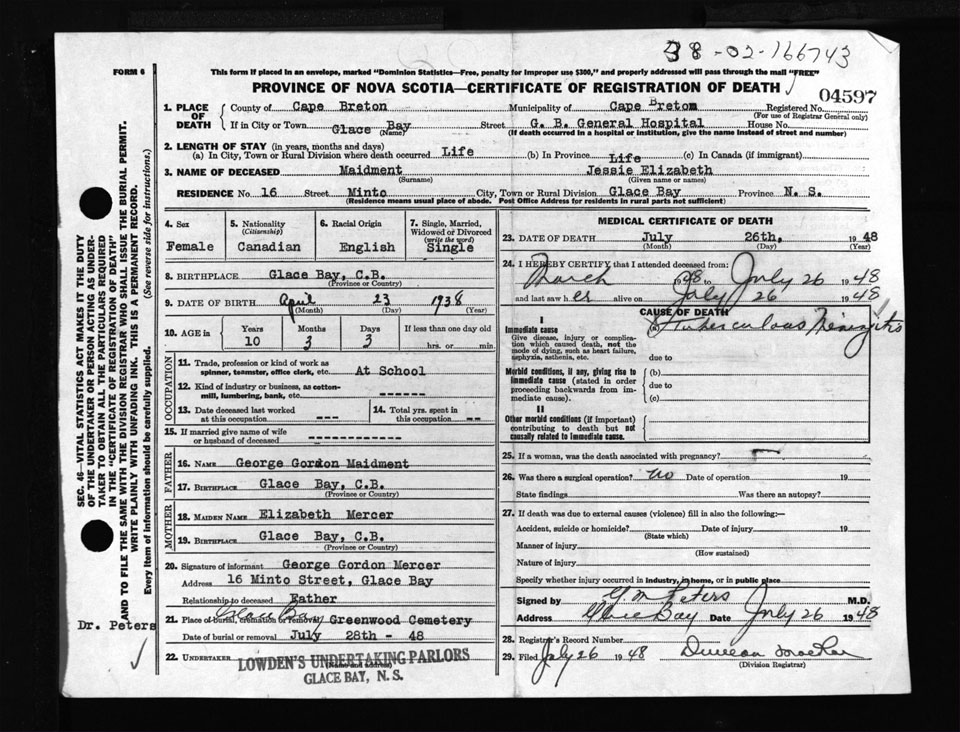 38-02-166743
FORM 6
This form if placed in an envelope, marked "Dominion Statistics—Free, penalty for improper use $300," and properly addressed will pass through the mail "FREE"
PROVINCE OF NOVA SCOTIA—CERTIFICATE OF REGISTRATION OF DEATH
04597
1. PLACE OF DEATH
County of Cape Breton Municipality of Cape Breton Registered No.
(For use of Registrar General only)
If in City or Town Glace Bay Street G. B. General Hospital House No.
(Name) (If death occurred in a hospital or institution, give the name instead of street and number)
2. LENGTH OF STAY (in years, months and days)
(a) In City, Town or Rural Division where death occurred Life (b) In Province Life (c) In Canada (if immigrant)
3. NAME OF DECEASED Maidment Jessie Elizabeth
(Surname) (Given name or names)
RESIDENCE No. 16 Street Minto City, Town or Rural Division Glace Bay Province N. S.
(Residence means usual place of abode. Post Office Address for residents in rural parts not sufficient)
4. Sex
Female
5. Nationality
(Citizenship)
Canadian
6. Racial Origin
English
7. Single, Married,
Widowed or Divorced
(write the word)
Single
8. BIRTHPLACE Glace Bay, C.B.
(Province or Country)
9. DATE OF BIRTH April 23 1938
(Month) (Day) (Year)
10. AGE in
Years Months Days If less than one day old
10 3 3 hrs. or min.
OCCUPATION
11. Trade, profession or kind of work as
spinner, teamster, office clerk, etc. At School
12. Kind of industry or business, as cotton-
mill, lumbering, bank, etc. ------
13. Date deceased last worked
at this occupation ---
14. Total yrs. spent in
this occupation --
15. If married give name of wife
or husband of deceased -------------
FATHER
16. NAME George Gordon Maidment
17. BIRTHPLACE Glace Bay, C.B.
(Province or Country)
MOTHER
18. MAIDEN NAME Elizabeth Mercer
19. BIRTHPLACE Glace Bay, C.B.
(Province or Country)
20. Signature of informant George Gordon Mercer
Address 16 Minto Street, Glace Bay
Relationship to deceased Father
Glace Bay
21. Place of burial, cremation or removal Greenwood Cemetery
Date of burial or removal July 28th - 48
22. UNDERTAKER LOWDEN'S UNDERTAKING PARLORS
GLACE BAY, N. S.
MEDICAL CERTIFICATE OF DEATH
23. DATE OF DEATH July 26th, 1948
(Month) (Day) (Year)
24. I HEREBY CERTIFY that I attended deceased from:
March 1948 to July 26 1948
and last saw her alive on July 26 1948
CAUSE OF DEATH
I
Immediate cause (a) Tuberculous Meningitis
Give disease, injury or complica-
tion which caused death, not the
mode of dying, such as heart failure,
asphyxia, asthenia, etc. due to
Morbid conditions, if any, giving rise to
immediate cause (stated in order
proceeding backwards from im-
mediate cause).
(b)
due to
(c)
II
Other morbid conditions (if important)
contributing to death but not
causally related to immediate cause.
25. If a woman, was the death associated with pregnancy?
26. Was there a surgical operation? no Date of operation 19
State findings Was there an autopsy?
27. If death was due to external causes (violence) fill in also the following:—
Accident, suicide or homicide? Date of injury 19
(State which)
Manner of injury
(How sustained)
Nature of injury
Specify whether injury occurred in industry, in home, or in public place
Signed by G. M. Peters M.D.
Address Glace Bay Date July 26 1948
28. Registrar's Record Number
29. Filed July 26 1948 Duncan MacRae
(Division Registrar)
SEC. 46—VITAL STATISTICS ACT MAKES IT THE DUTY
OF THE UNDERTAKER OR PERSON ACTING AS UNDER-
TAKER TO OBTAIN ALL THE PARTICULARS REQUIRED
IN THE "CERTIFICATE OF REGISTRATION OF DEATH"
AND TO FILE THE SAME WITH THE DIVISION REGISTRAR WHO SHALL ISSUE THE BURIAL PERMIT.
WRITE PLAINLY WITH UNFADING INK. THIS IS A PERMANENT RECORD.
Every item of information should be carefully supplied. (See reverse side for instructions.)
Dr. Peters